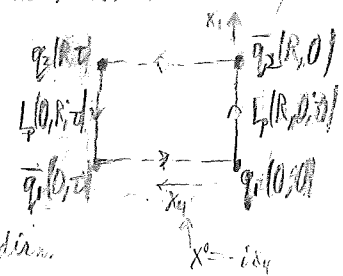 x₁
q₂(R,τ) q̄₂(R,0)
Lₚ(0,R;τ) Lₚ(R,0;0)
q̄₁(0,τ) q₁(0,0)
x₄
x⁰=-ix₄